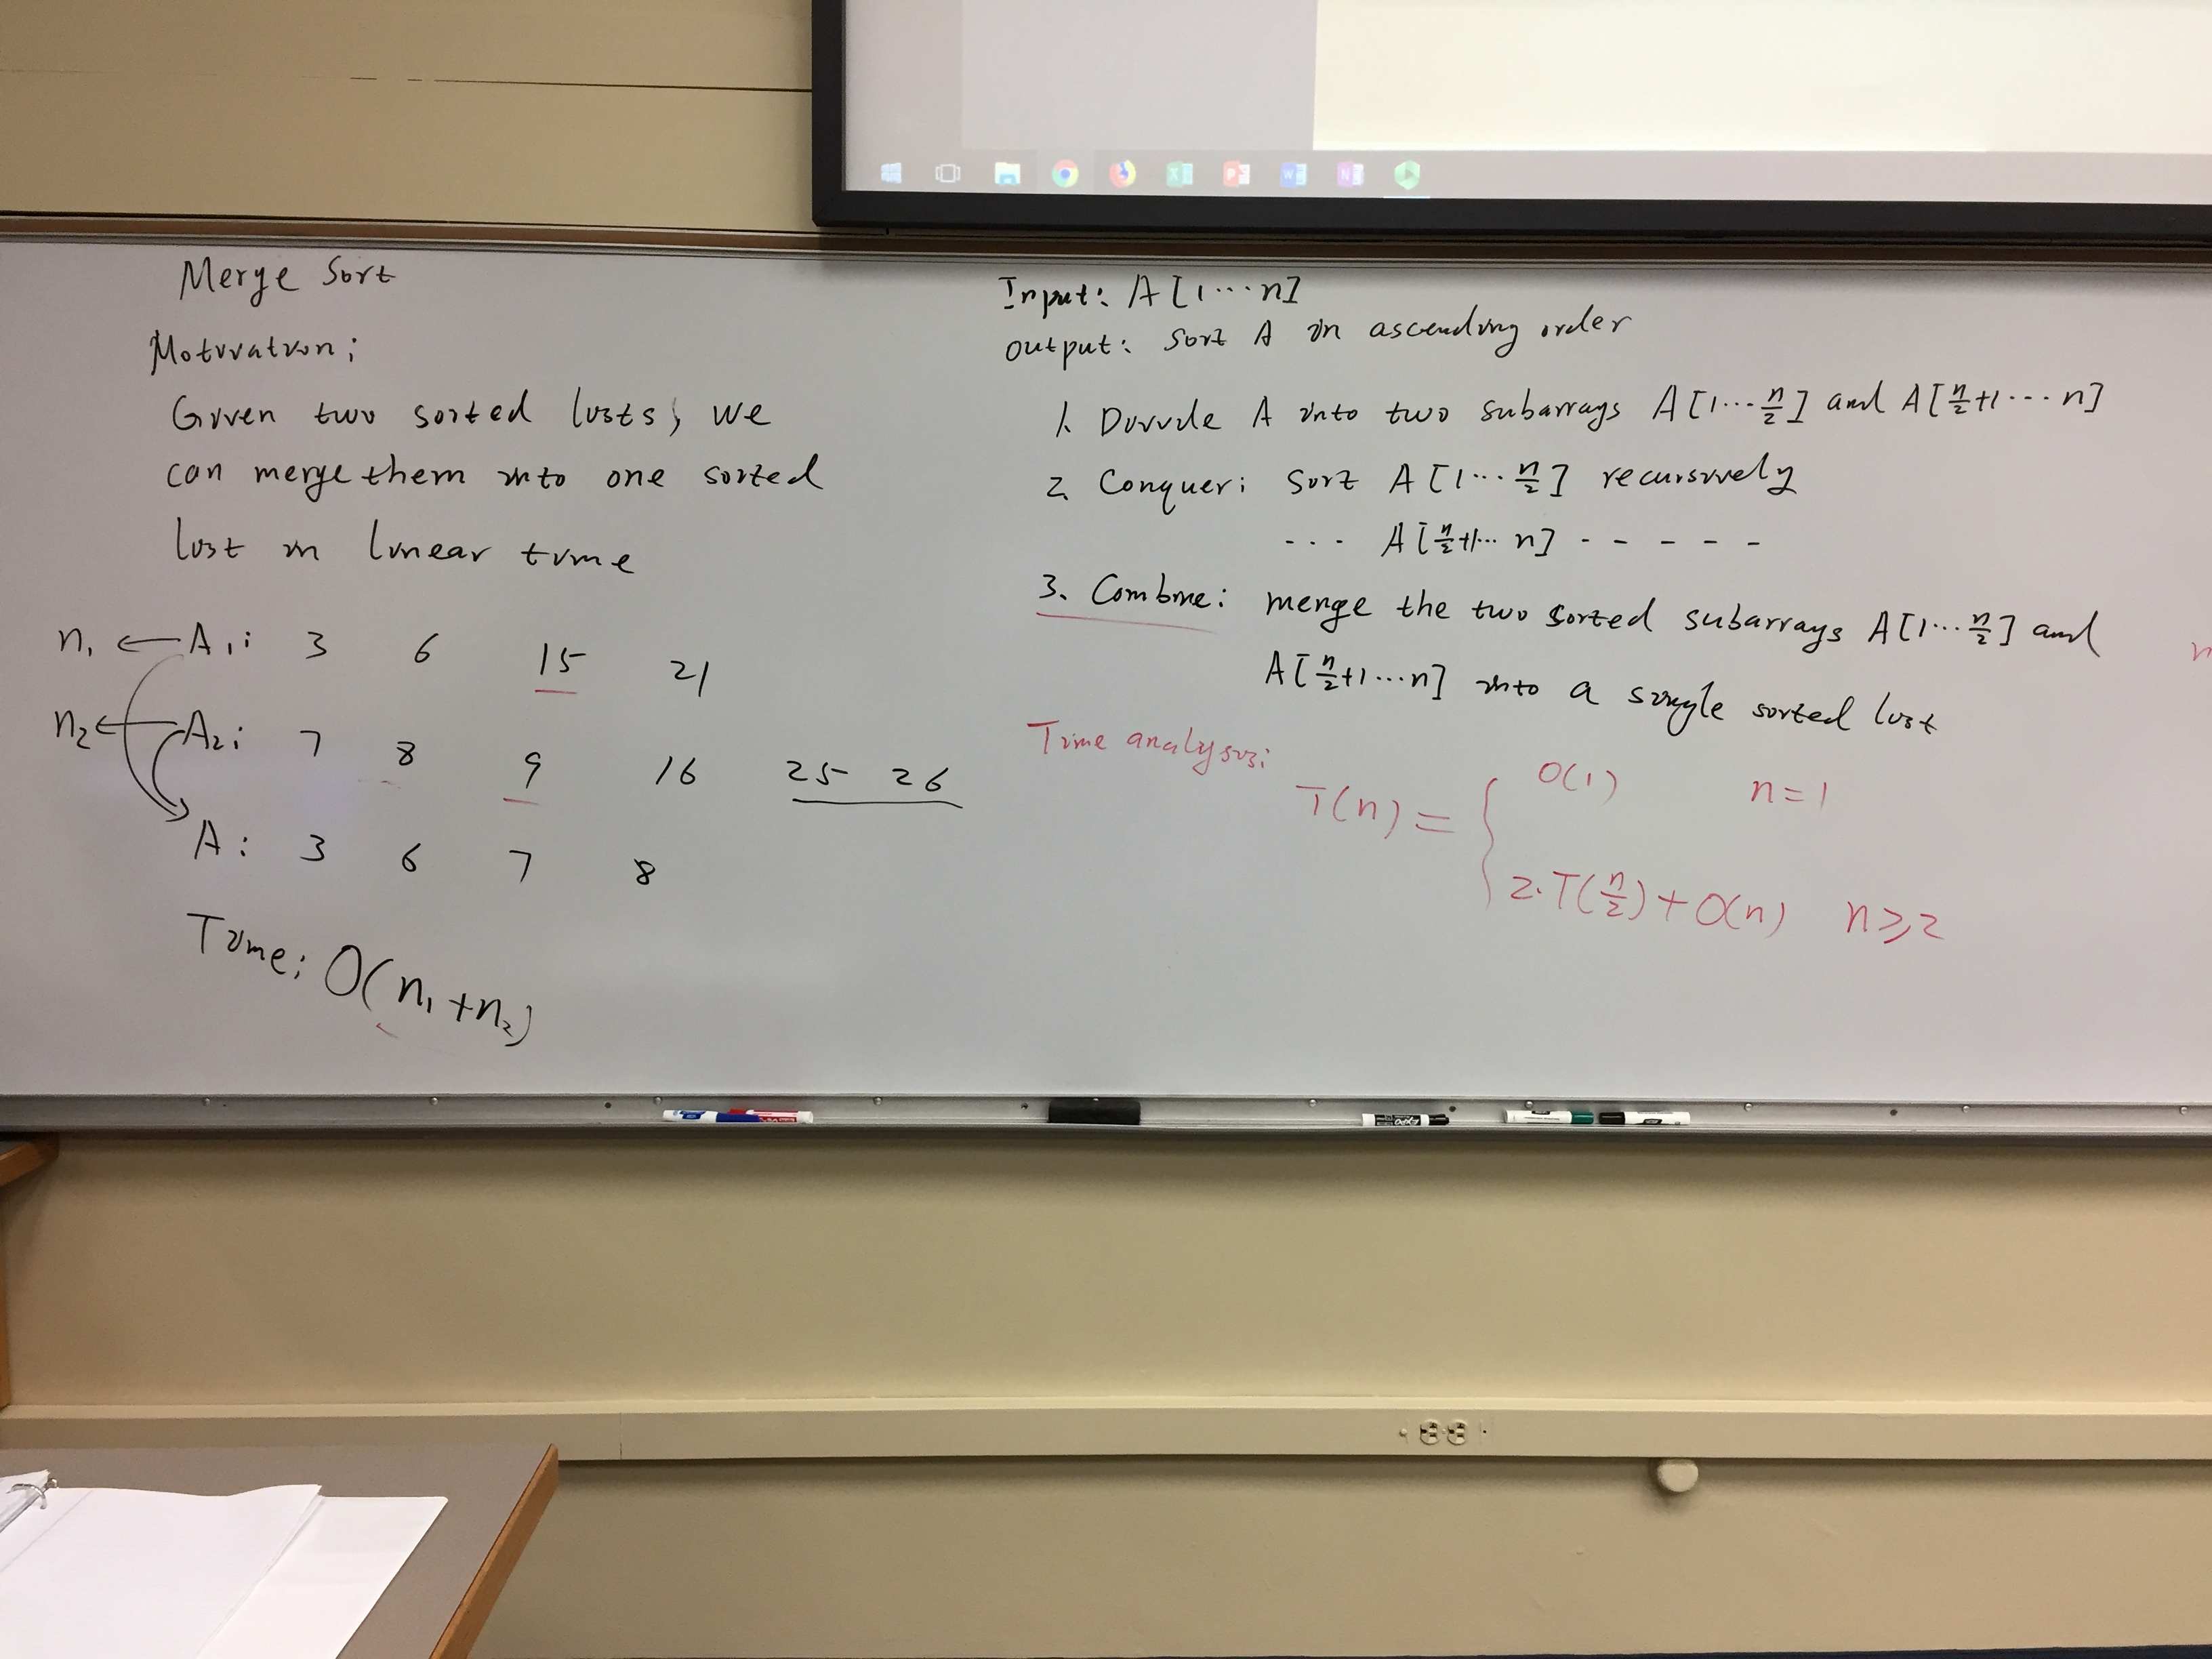 Merge Sort
Motivation:
Given two sorted lists, we
can merge them into one sorted
list in linear time
n₁ ← A₁: 3 6 15 21
n₂ ← A₂: 7 8 9 16 25 26
A: 3 6 7 8
Time: O(n₁+n₂)
Input: A[1···n]
output: Sort A in ascending order
1. Divide A into two subarrays A[1···n/2] and A[n/2+1···n]
2. Conquer: Sort A[1···n/2] recursively
--- A[n/2+1···n] - - - - -
3. Combine: merge the two sorted subarrays A[1···n/2] and
A[n/2+1···n] into a single sorted list
Time analysis:
T(n) = { O(1) n=1
2·T(n/2)+O(n) n≥2